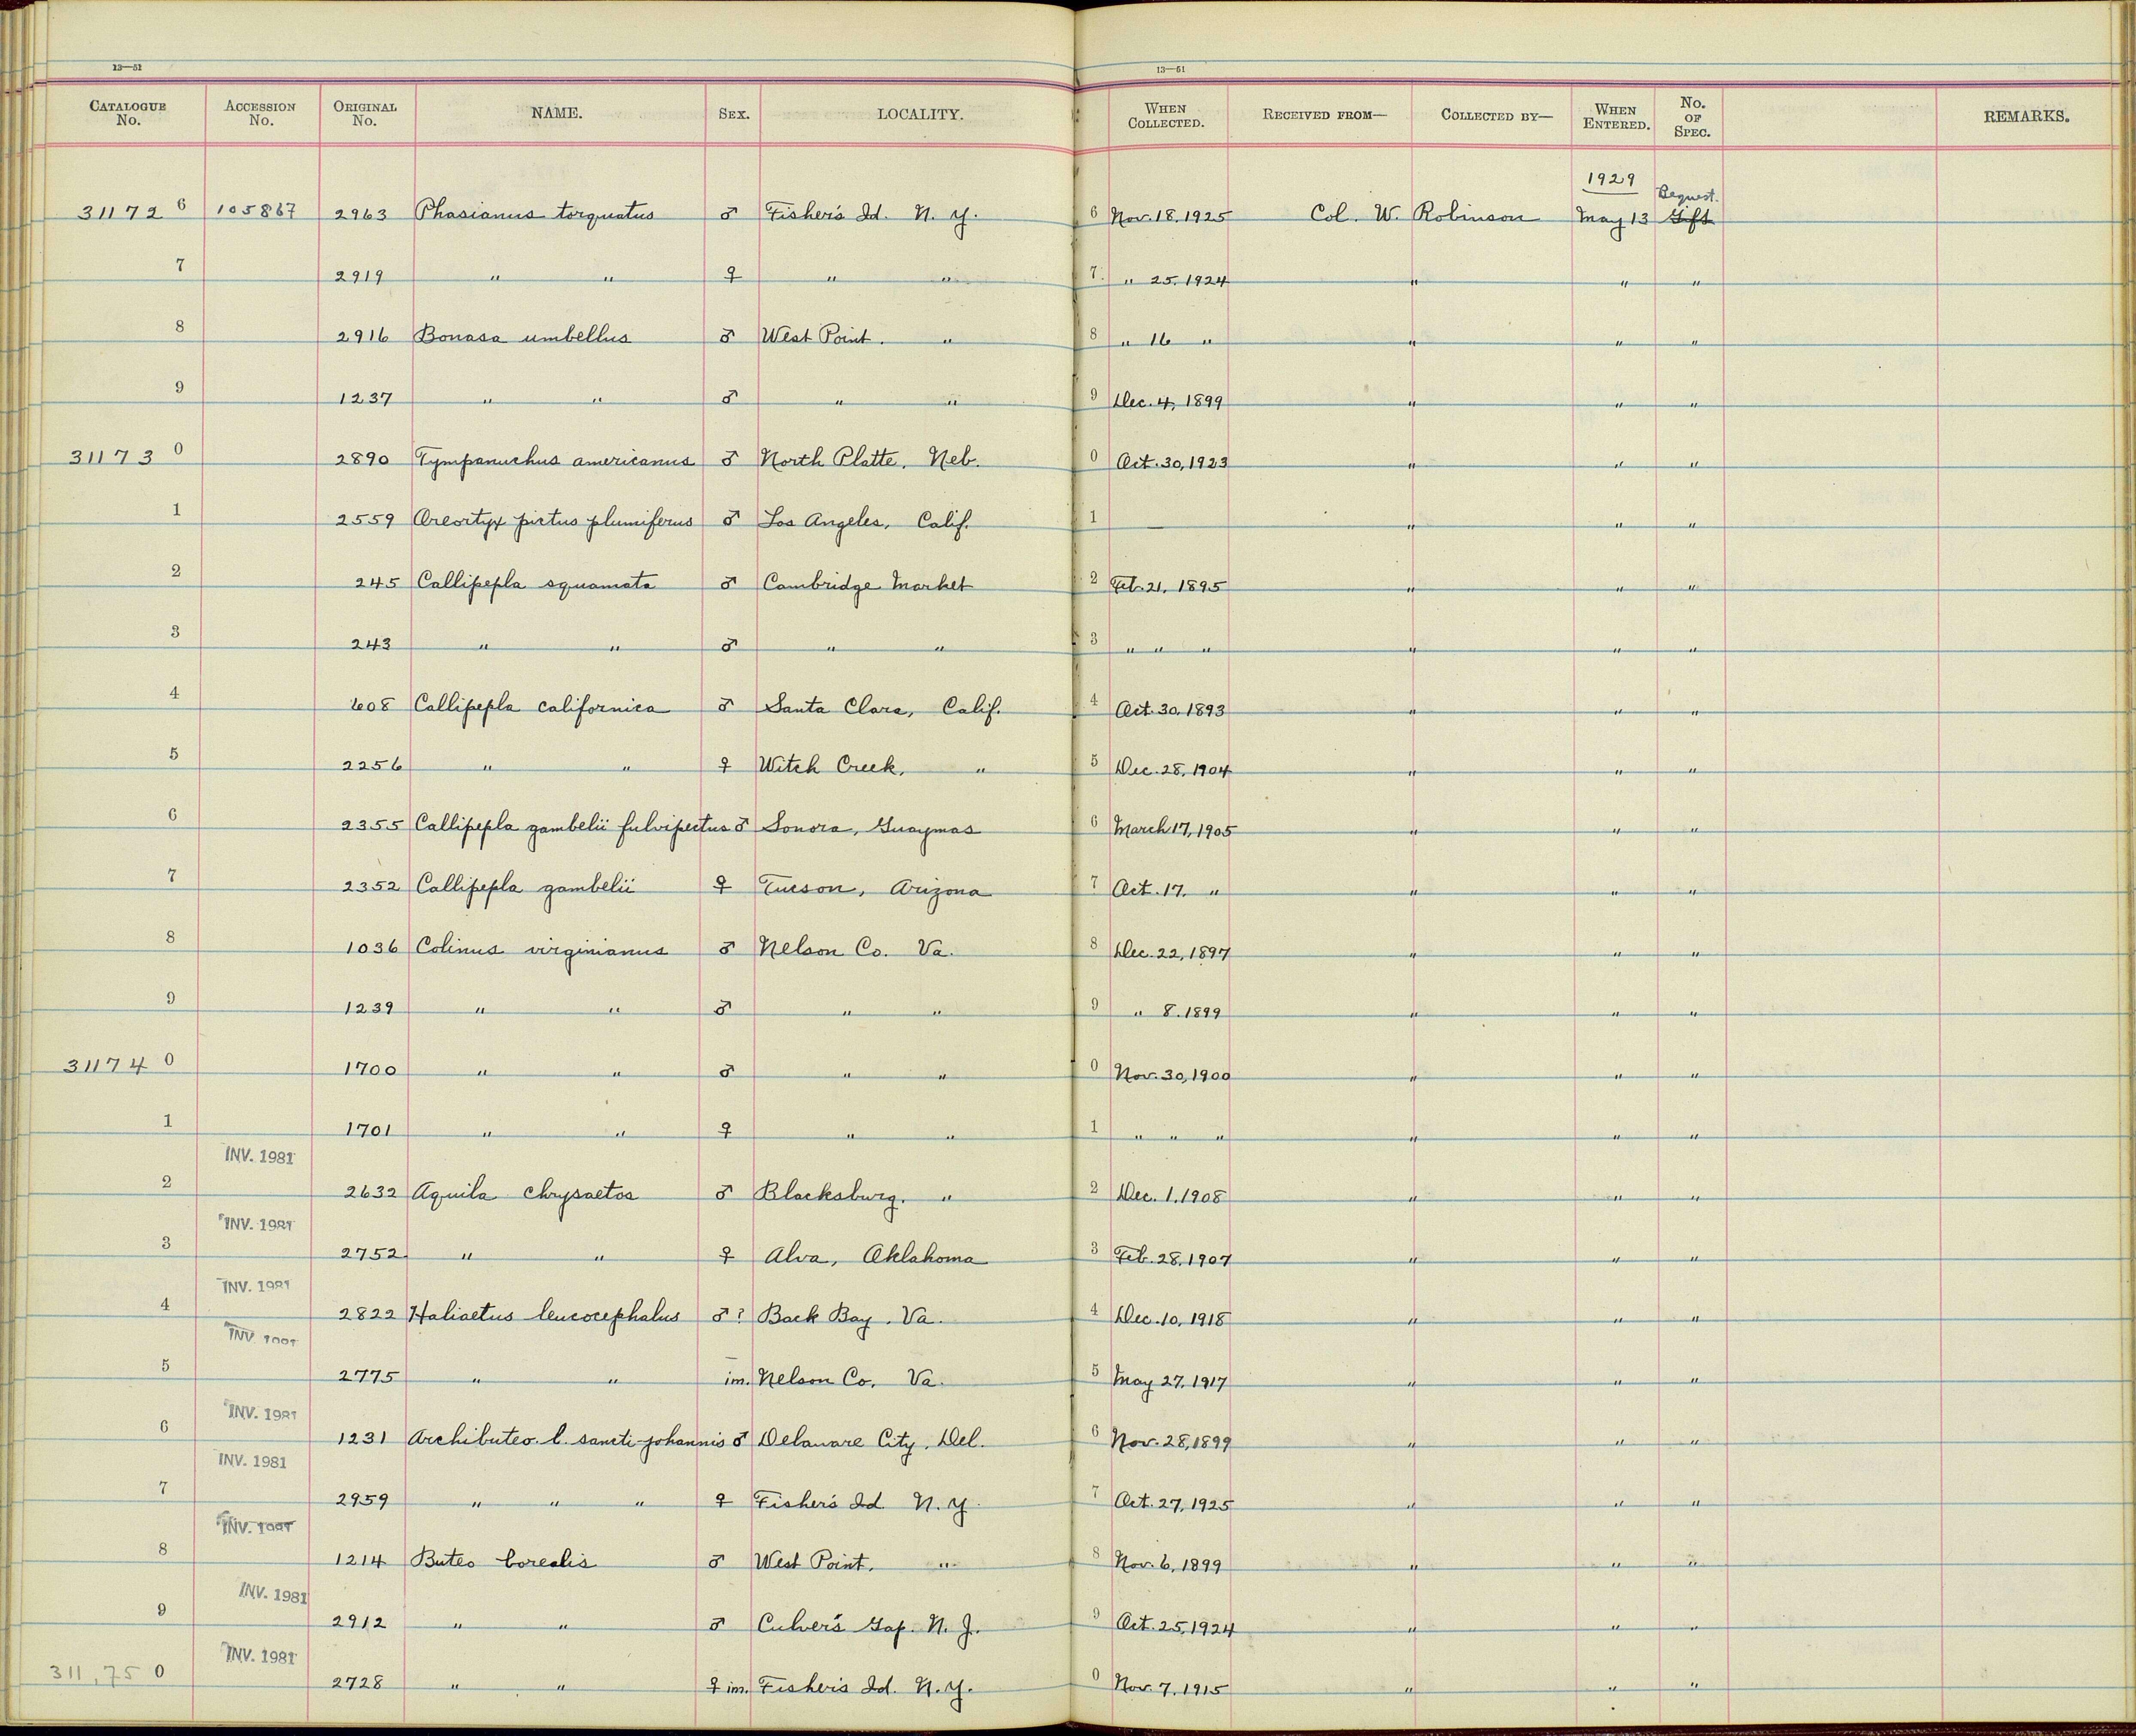 13—51 13—51
CATALOGUE No. ACCESSION No. ORIGINAL No. NAME. SEX. LOCALITY. WHEN COLLECTED. RECEIVED FROM— COLLECTED BY— WHEN ENTERED. No. OF SPEC. REMARKS.
1929 Bequest.
31172 6 105867 2963 Phasianus torquatus ♂ Fisher's Id. N. Y. 6 Nov. 18, 1925 Col. W. Robinson May 13 Gift
7 2919 " " ♀ " " 7 " 25, 1924 " " "
8 2916 Bonasa umbellus ♂ West Point. " 8 " 16 " " " "
9 1237 " " ♂ " " 9 Dec. 4, 1899 " " "
31173 0 2890 Tympanuchus americanus ♂ North Platte, Neb. 0 Oct. 30, 1923 " " "
1 2559 Oreortyx pictus plumiferus ♂ Los Angeles, Calif. 1 — " " "
2 245 Callipepla squamata ♂ Cambridge Market 2 Feb. 21, 1895 " " "
3 243 " " ♂ " " 3 " " " " " "
4 608 Callipepla californica ♂ Santa Clara, Calif. 4 Oct. 30, 1893 " " "
5 2256 " " ♀ Witch Creek, " 5 Dec. 28, 1904 " " "
6 2355 Callipepla gambelii fulvipectus ♂ Sonora, Guaymas 6 March 17, 1905 " " "
7 2352 Callipepla gambelii ♀ Tucson, Arizona 7 Oct. 17. " " " "
8 1036 Colinus virginianus ♂ Nelson Co. Va. 8 Dec. 22, 1897 " " "
9 1239 " " ♂ " " 9 " 8. 1899 " " "
31174 0 1700 " " ♂ " " 0 Nov. 30, 1900 " " "
1 1701 " " ♀ " " 1 " " " " " "
INV. 1981
2 2632 Aquila chrysaetos ♂ Blacksburg. " 2 Dec. 1, 1908 " " "
INV. 1981
3 2752 " " ♀ Alva, Oklahoma 3 Feb. 28, 1907 " " "
INV. 1981
4 2822 Haliaetus leucocephalus ♂? Back Bay, Va. 4 Dec. 10, 1918 " " "
INV. 1981
5 2775 " " im. Nelson Co. Va. 5 May 27, 1917 " " "
INV. 1981
6 1231 Archibuteo l. sancti-johannis ♂ Delaware City, Del. 6 Nov. 28, 1899 " " "
INV. 1981
7 2959 " " " ♀ Fisher's Id. N. Y. 7 Oct. 27, 1925 " " "
INV. 1981
8 1214 Buteo borealis ♂ West Point. " 8 Nov. 6, 1899 " " "
INV. 1981
9 2912 " " ♂ Culver's Gap. N. J. 9 Oct. 25, 1924 " " "
INV. 1981
311,75 0 2728 " " ♀ im. Fisher's Id. N. Y. 0 Nov. 7, 1915 " " "